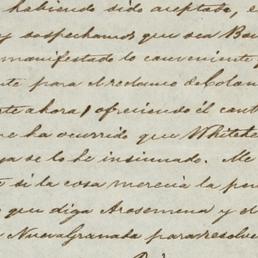 habiendo sido aceptado, e
y sospechamos que sea Bar
manifestado lo conveniente
te para el reclamo de Colom
te ahora, ofreciendo él cant
me ha ocurrido que Whitele
ga se lo he insinuado. Me
si la cosa merecia la pen
que diga Arosemena y el
Nueva Granada para resolve